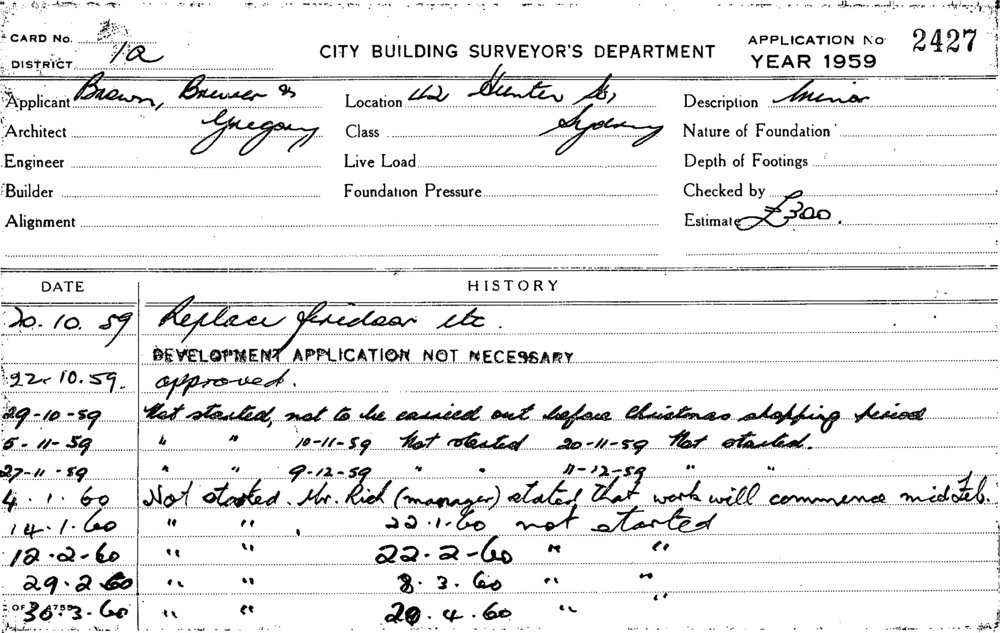 CARD No.
DISTRICT 1a
CITY BUILDING SURVEYOR'S DEPARTMENT
APPLICATION No 2427
YEAR 1959
Applicant Brown, Brewer &
Gregory
Location 42 Hunter St,
Sydney
Description Minor
Architect
Class
Nature of Foundation
Engineer
Live Load
Depth of Footings
Builder
Foundation Pressure
Checked by
Alignment
Estimate £300.
DATE HISTORY
20. 10. 59 Replace firedoor etc.
DEVELOPMENT APPLICATION NOT NECESSARY
22-10.59. approved.
29-10-59 Not started, not to be carried out before Christmas shopping period
5-11-59 " " 10-11-59 Not started 20-11-59 Not started.
27-11-59 " " 9-12-59 " " 11-12-59 " "
4.1.60 Not started. Mr. Rich (manager) stated that work will commence mid Feb.
14.1.60 " " , 22.1.60 not started
12.2-60 " " 22.2-60 " "
29.2 60 " " 8.3.60 " "
30.3.60 " " 20.4.60 " "